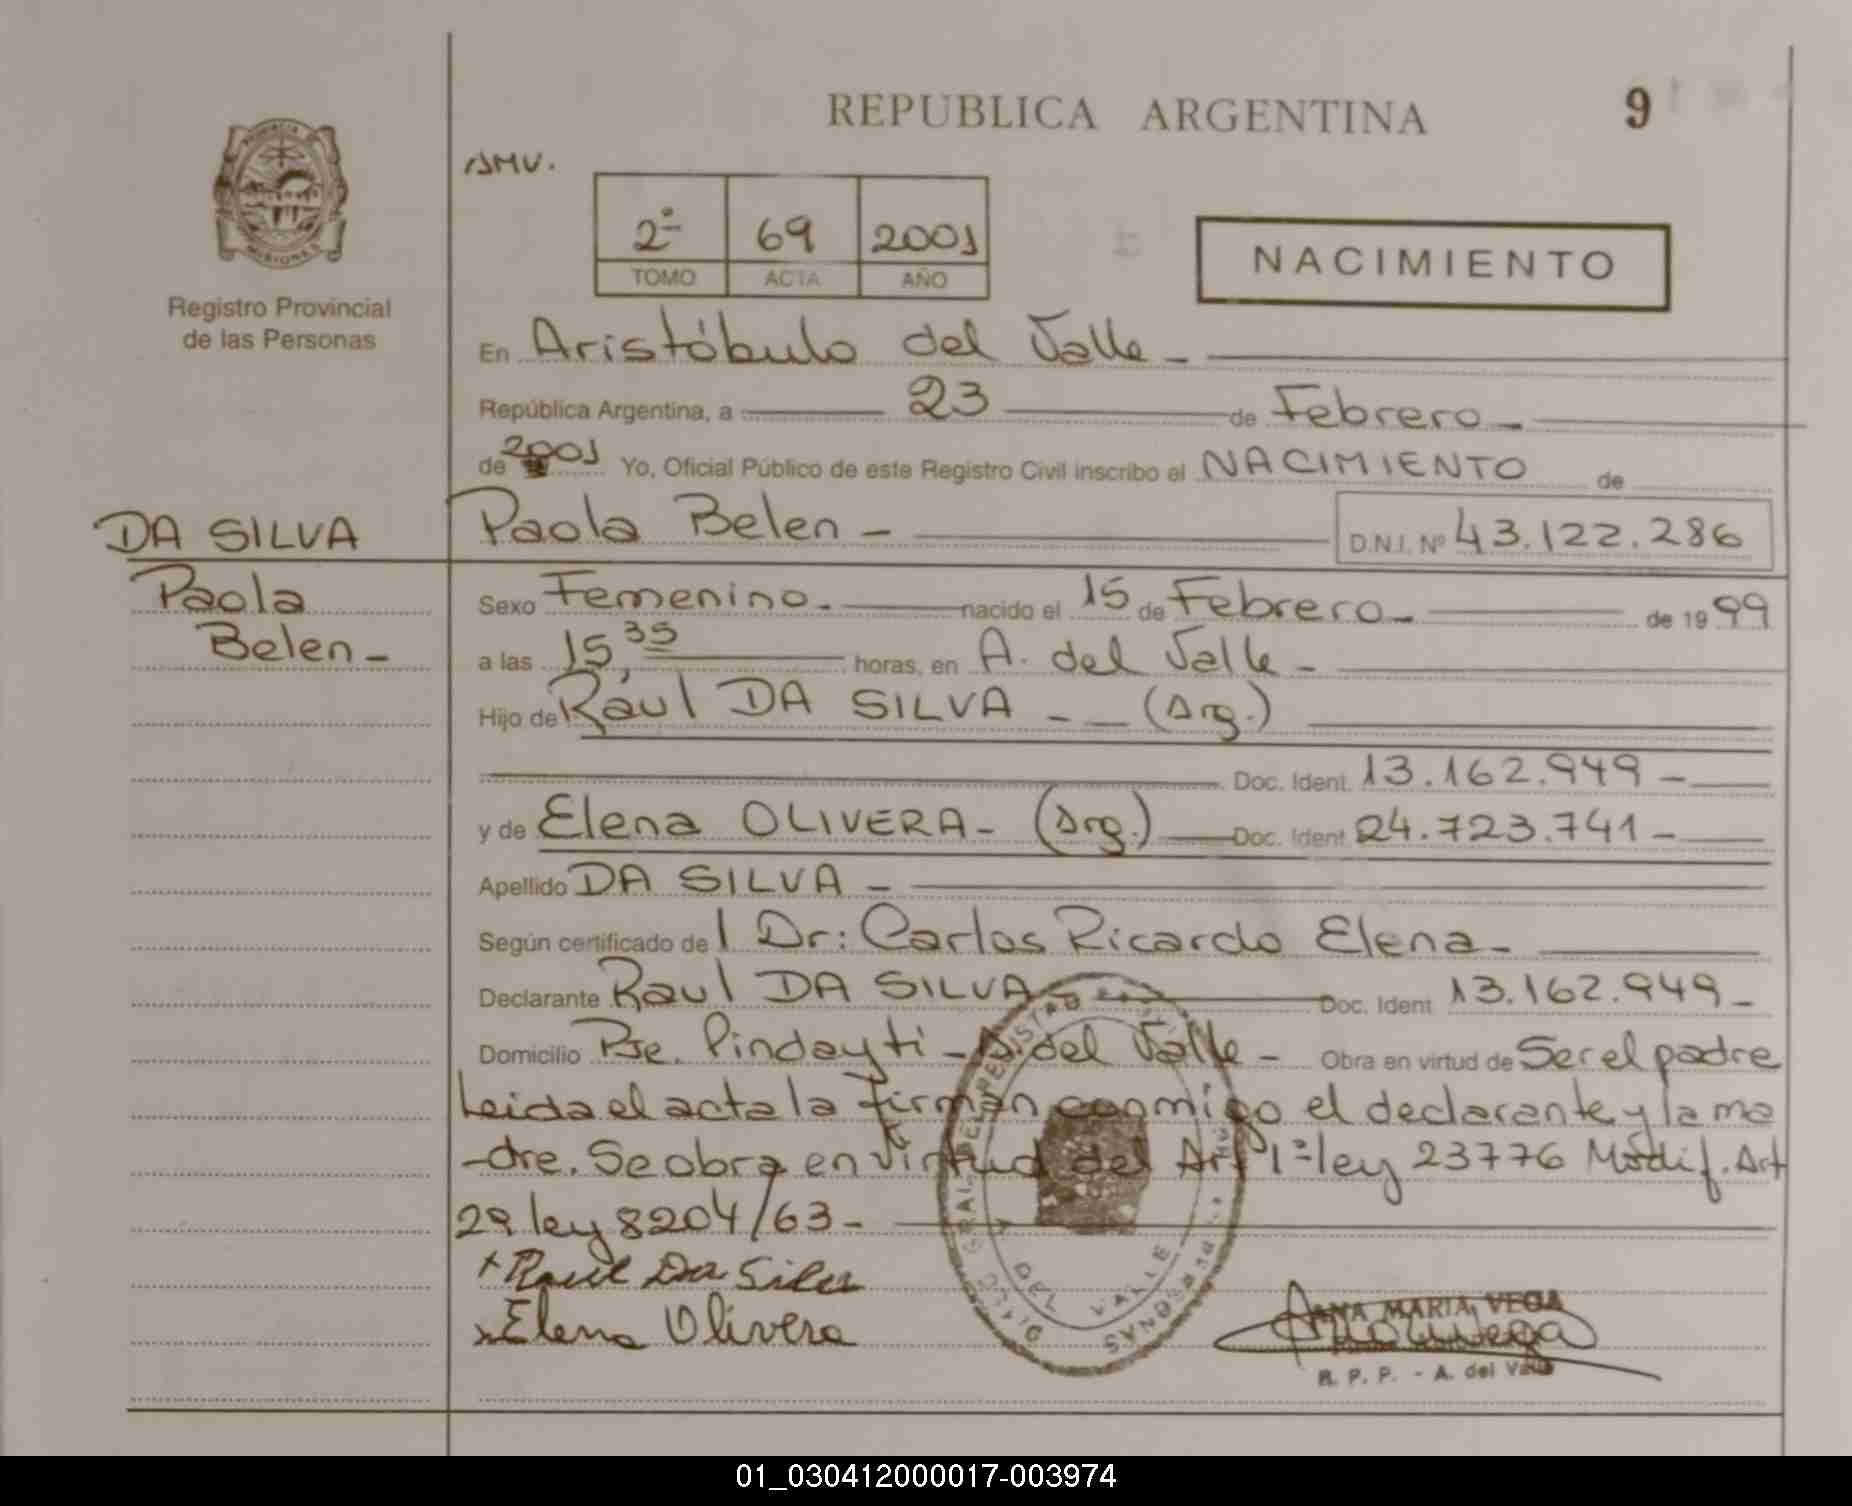 REPUBLICA ARGENTINA
9
PROVINCIA
MISIONES
Registro Provincial
de las Personas
AMV.
2º 69 2001
TOMO ACTA AÑO
NACIMIENTO
En Aristóbulo del Valle -
República Argentina, a 23 de Febrero -
de 2001 Yo, Oficial Público de este Registro Civil inscribo el NACIMIENTO de
DA SILVA
Paola
Belen -
Paola Belen - D.N.I. Nº 43.122.286
Sexo Femenino. nacido el 15 de Febrero - de 1999
a las 15,35 horas, en A. del Valle -
Hijo de Raul DA SILVA - (Arg.)
Doc. Ident. 13.162.949 -
y de Elena OLIVERA - (Arg.) Doc. Ident. 24.723.741 -
Apellido DA SILVA -
Según certificado del Dr: Carlos Ricardo Elena -
Declarante Raul DA SILVA - Doc. Ident. 13.162.949 -
Domicilio Pje. Pindayti - A. del Valle - Obra en virtud de Ser el padre
Leida el acta la firman conmigo el declarante y la ma
-dre. Se obra en virtud del Art 1º ley 23776 Modif. Art
29 ley 8204/63 -
x Raul Da Silva
x Elena Olivera
DEL VALLE
PERSONAS
ANA MARIA VEGA
R. P. P. - A. del Valle
01_030412000017-003974